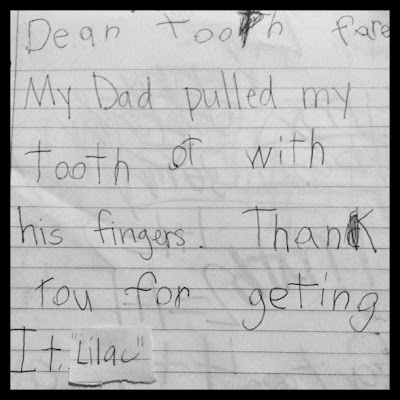 Dear tooth fare
My Dad pulled my
tooth ot with
his fingers. Thank
You for geting
It. "Lilac"